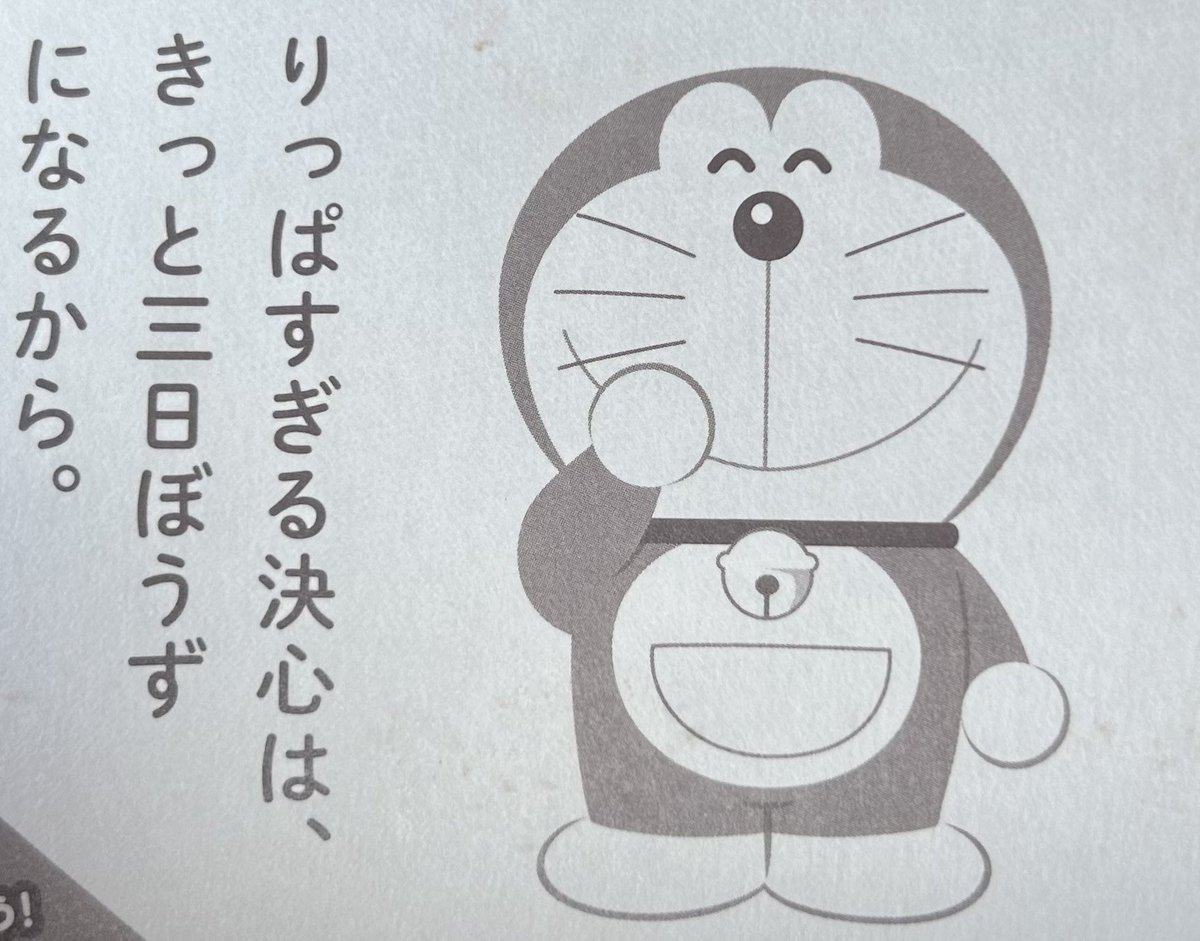 りっぱすぎる決心は、
きっと三日ぼうず
になるから。
う!